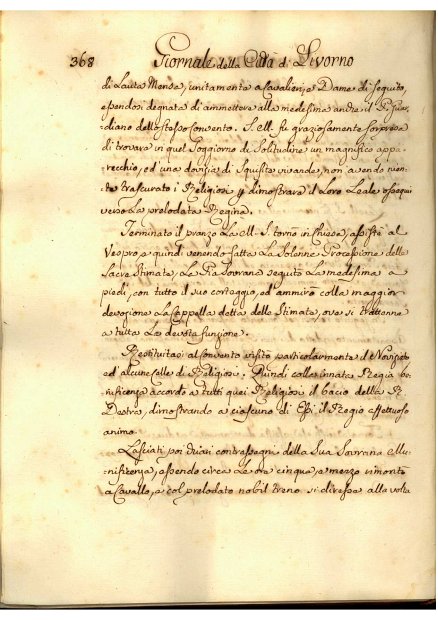 368 Giornale della Città di Livorno
di Lauta Mensa, unitamente a Cavalieri, e Dame di seguito,
essendosi degnata di ammettere alla medesima anche il P. Guar-
diano dello stesso Convento. S. M. fu graziosamente sorpresa
di trovare in quel Soggiorno di Solitudine un magnifico appa-
recchio, ed una dovizia di Squisite vivande, non avendo nien-
te trascurato i Religiosi p dimostrare il Loro Leale ossequi
verso La prelodata Regina.
Terminato il pranzo La M. S. tornò in Chiesa, assistè al
Vespro, e quindi venendo fatta La Solenne Processione delle
Sacre Stimate, La Pia Sovrana seguitò La medesima a
piedi, con tutto il suo corteggio, ed ammirò colla maggior
devozione La Cappella detta delle Stimate, ove si trattenne
a tutta La devota funzione.
Restituitasi al Convento visitò particolarmente il
ed alcune Celle di Religiosi. Quindi colla innata Regia be-
nificenza accordò a tutti quei Religiosi il bacio della R.
Destra, dimostrando a ciascuno di Essi il Regio affettuoso
animo.
Lasciati poi varj contrassegni della Sua Sovrana Mu-
nificenza, essendo circa Le ore cinque, e mezzo rimontò
a Cavallo, e col prelodato nobil treno si diresse alla volta